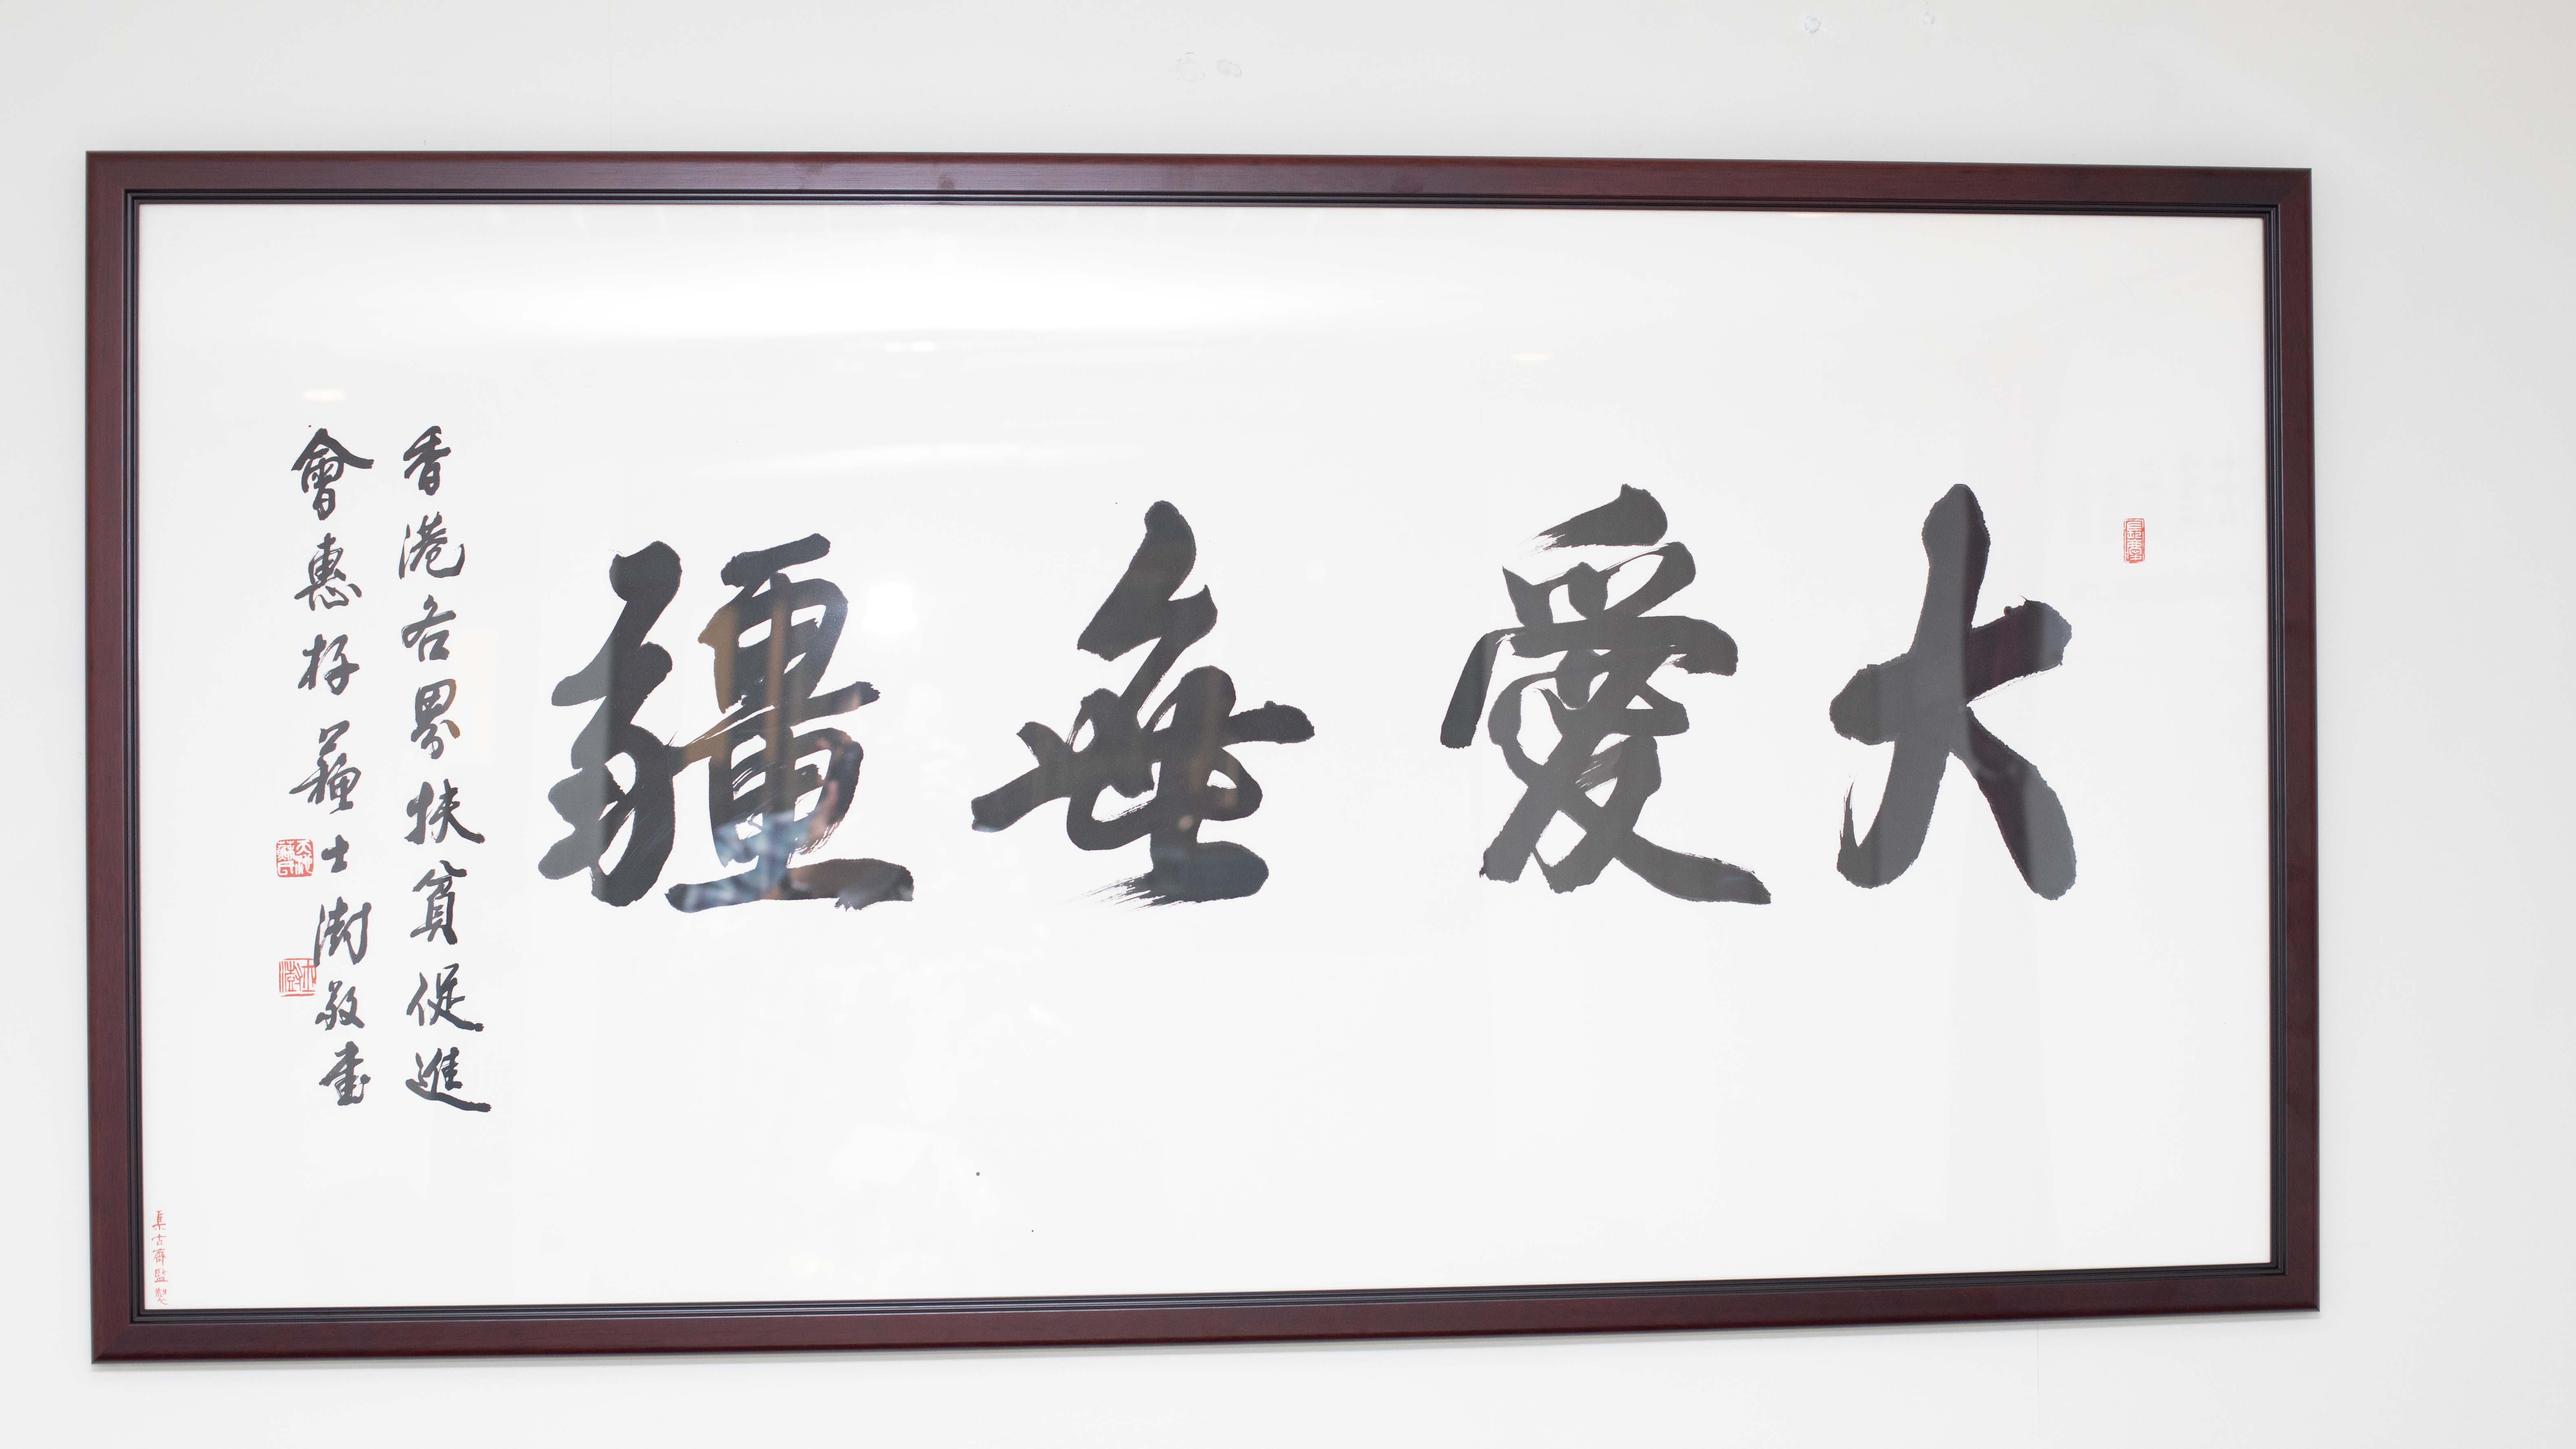 大愛無疆
香港各界扶貧促進
會惠存 蘇士澍敬書
集古齋監製